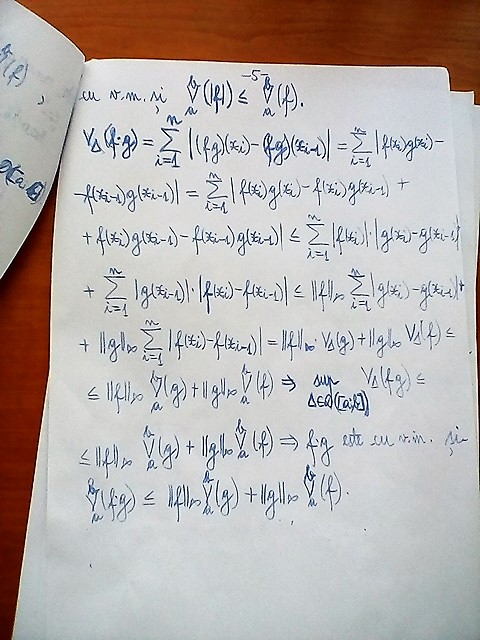 -5-
cu v.m. și V_a^b(|f|) ≤ V_a^b(f).
V_Δ(f·g) = ∑_{i=1}^n |(fg)(x_i) - (fg)(x_{i-1})| = ∑_{i=1}^n |f(x_i)g(x_i) -
- f(x_{i-1})g(x_{i-1})| = ∑_{i=1}^n |f(x_i)g(x_i) - f(x_i)g(x_{i-1}) +
+ f(x_i)g(x_{i-1}) - f(x_{i-1})g(x_{i-1})| ≤ ∑_{i=1}^n |f(x_i)|·|g(x_i) - g(x_{i-1})|
+ ∑_{i=1}^n |g(x_{i-1})|·|f(x_i) - f(x_{i-1})| ≤ ||f||_∞ ∑_{i=1}^n |g(x_i) - g(x_{i-1})| +
+ ||g||_∞ ∑_{i=1}^n |f(x_i) - f(x_{i-1})| = ||f||_∞·V_Δ(g) + ||g||_∞ V_Δ(f) ≤
≤ ||f||_∞ V_a^b(g) + ||g||_∞ V_a^b(f) ⇒ sup_{Δ∈D([a,b])} V_Δ(f·g) ≤
≤ ||f||_∞ V_a^b(g) + ||g||_∞ V_a^b(f) ⇒ f·g este cu v.m. și
V_a^b(f·g) ≤ ||f||_∞ V_a^b(g) + ||g||_∞ V_a^b(f).